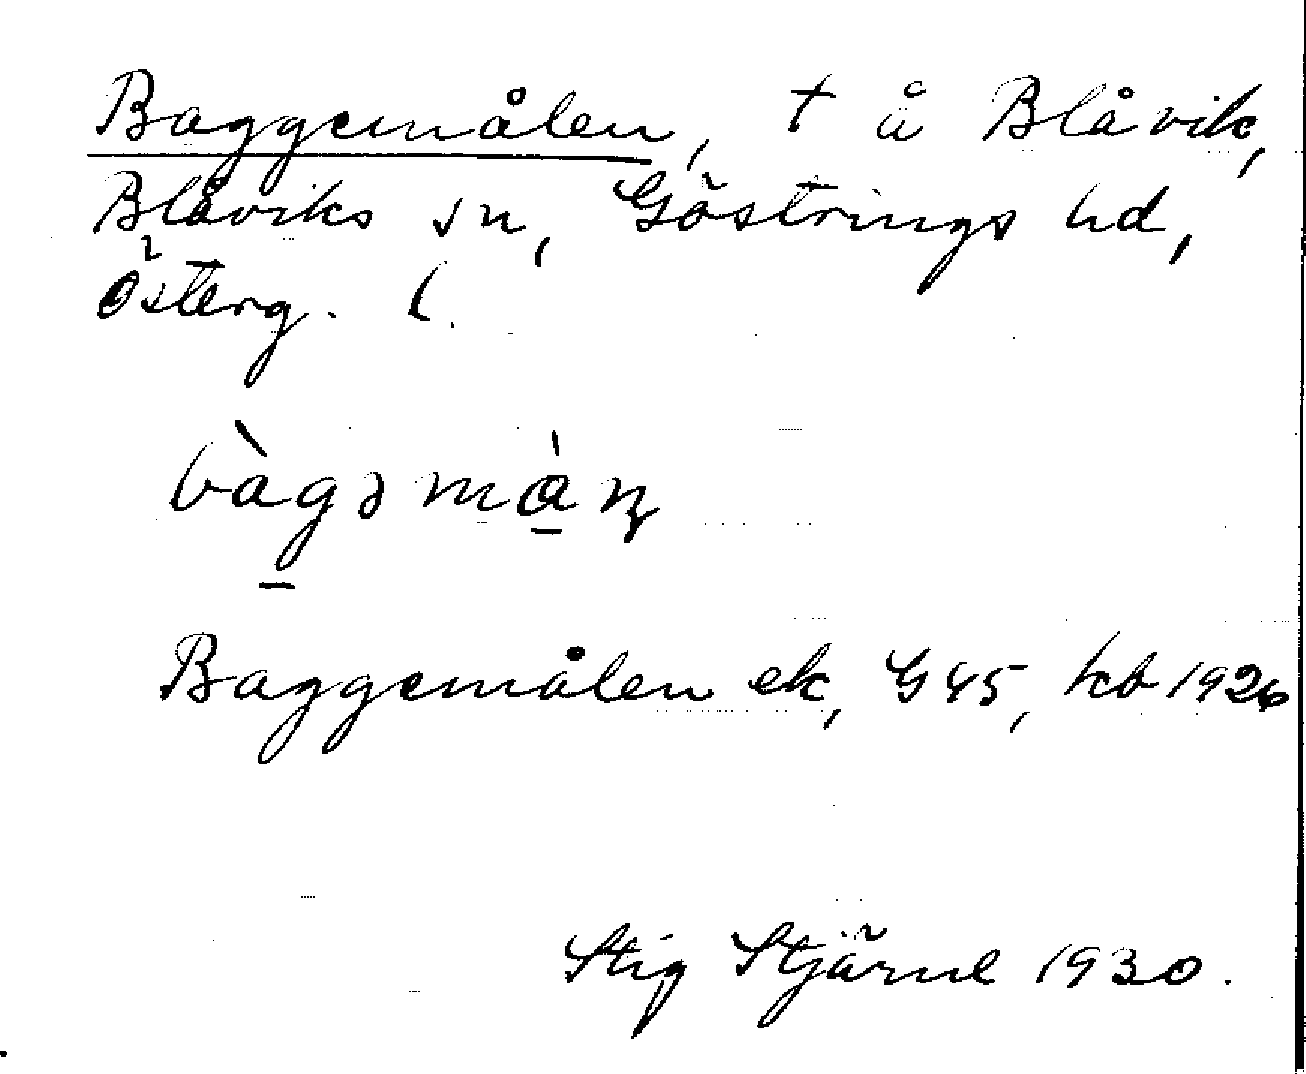 Baggemålen, † å Blåvik,
Blåviks sn, Göstrings hd,
Österg. l.
bàgəmàn̥
Baggemålen ek, G 45, kb 1926
Stig Stjärne 1930.